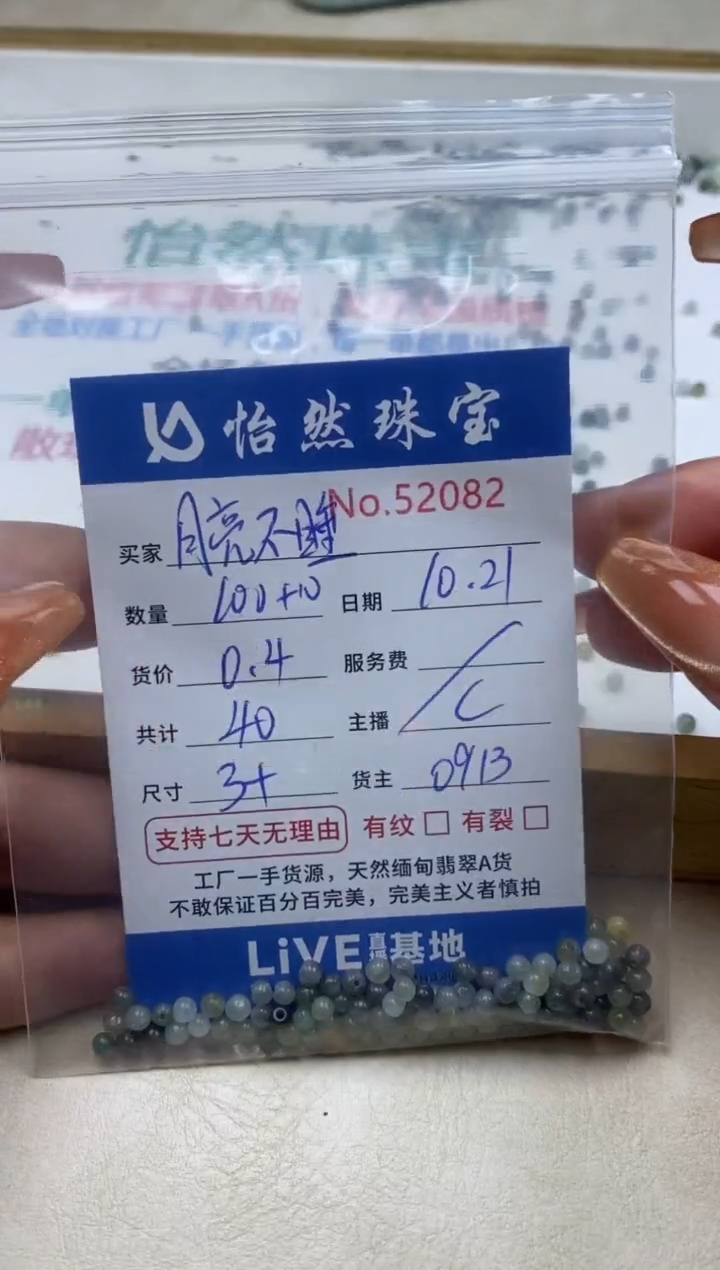 怡然珠宝
No.52082
买家 月亮不睡
数量 100+10 日期 10.21
货价 0.4 服务费 /
共计 40 主播 C
尺寸 3+ 货主 0913
支持七天无理由 有纹 □ 有裂 □
工厂一手货源，天然缅甸翡翠A货
不敢保证百分百完美，完美主义者慎拍
LiVE直播基地